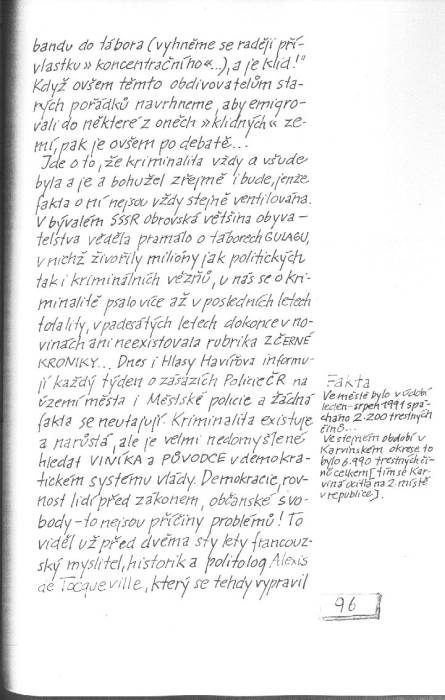 bandu do tábora (vyhněme se raději pří-
vlastku »koncentračního«...), a je klid!"
Když ovšem těmto obdivovatelům sta-
rých pořádků navrhneme, aby emigro-
vali do některé z oněch »klidných« ze-
mí, pak je ovšem po debatě...
Jde o to, že kriminalita vždy a všude
byla a je a bohužel zřejmě i bude, jenže
fakta o ní nejsou vždy stejně ventilována.
V bývalém SSSR obrovská většina obyva-
telstva věděla pramálo o táborech GULAGU,
v nichž živořily miliony jak politických
tak i kriminálních vězňů, u nás se o kri-
minalitě psalo více až v posledních letech
totality, v padesátých letech dokonce v no-
vinách ani neexistovala rubrika Z ČERNÉ
KRONIKY... Dnes i Hlasy Havířova informu-
jí každý týden o zásazích Policie ČR na
území města i Městské policie a žádná
fakta se neutajují. Kriminalita existuje
a narůstá, ale je velmi nedomyšlené
hledat VINÍKA a PŮVODCE v demokra-
tickém systému vlády. Demokracie, rov-
nost lidí před zákonem, občanské svo-
body – to nejsou příčiny problémů! To
viděl už před dvěma sty lety francouz-
ský myslitel, historik a politolog Alexis
de Tocqueville, který se tehdy vypravil
Fakta
Ve městě bylo v údobí
leden - srpen 1991 spá-
cháno 2.200 trestných
činů...
Ve stejném období v
Karvinském okrese to
bylo 6.990 trestných či-
nů celkem [tím se Kar-
viná ocitla na 2. místě
v republice].
96